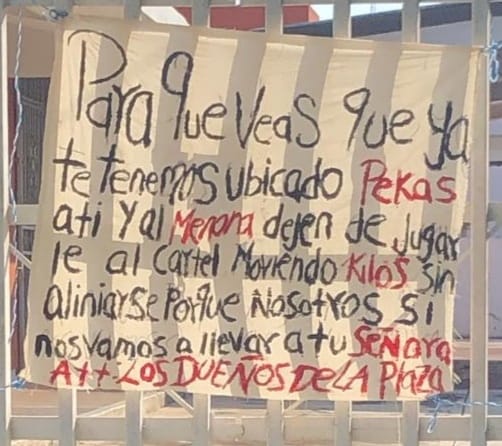 Para que veas que ya
te tenemos ubicado Pekas
a ti y al Menona dejen de Jugar
le al Cartel Moviendo Kilos sin
aliniarse Porque Nosotros Si
nos vamos a llevar a tu SEÑORA
Att LOS DUEÑOS DE LA PlazA